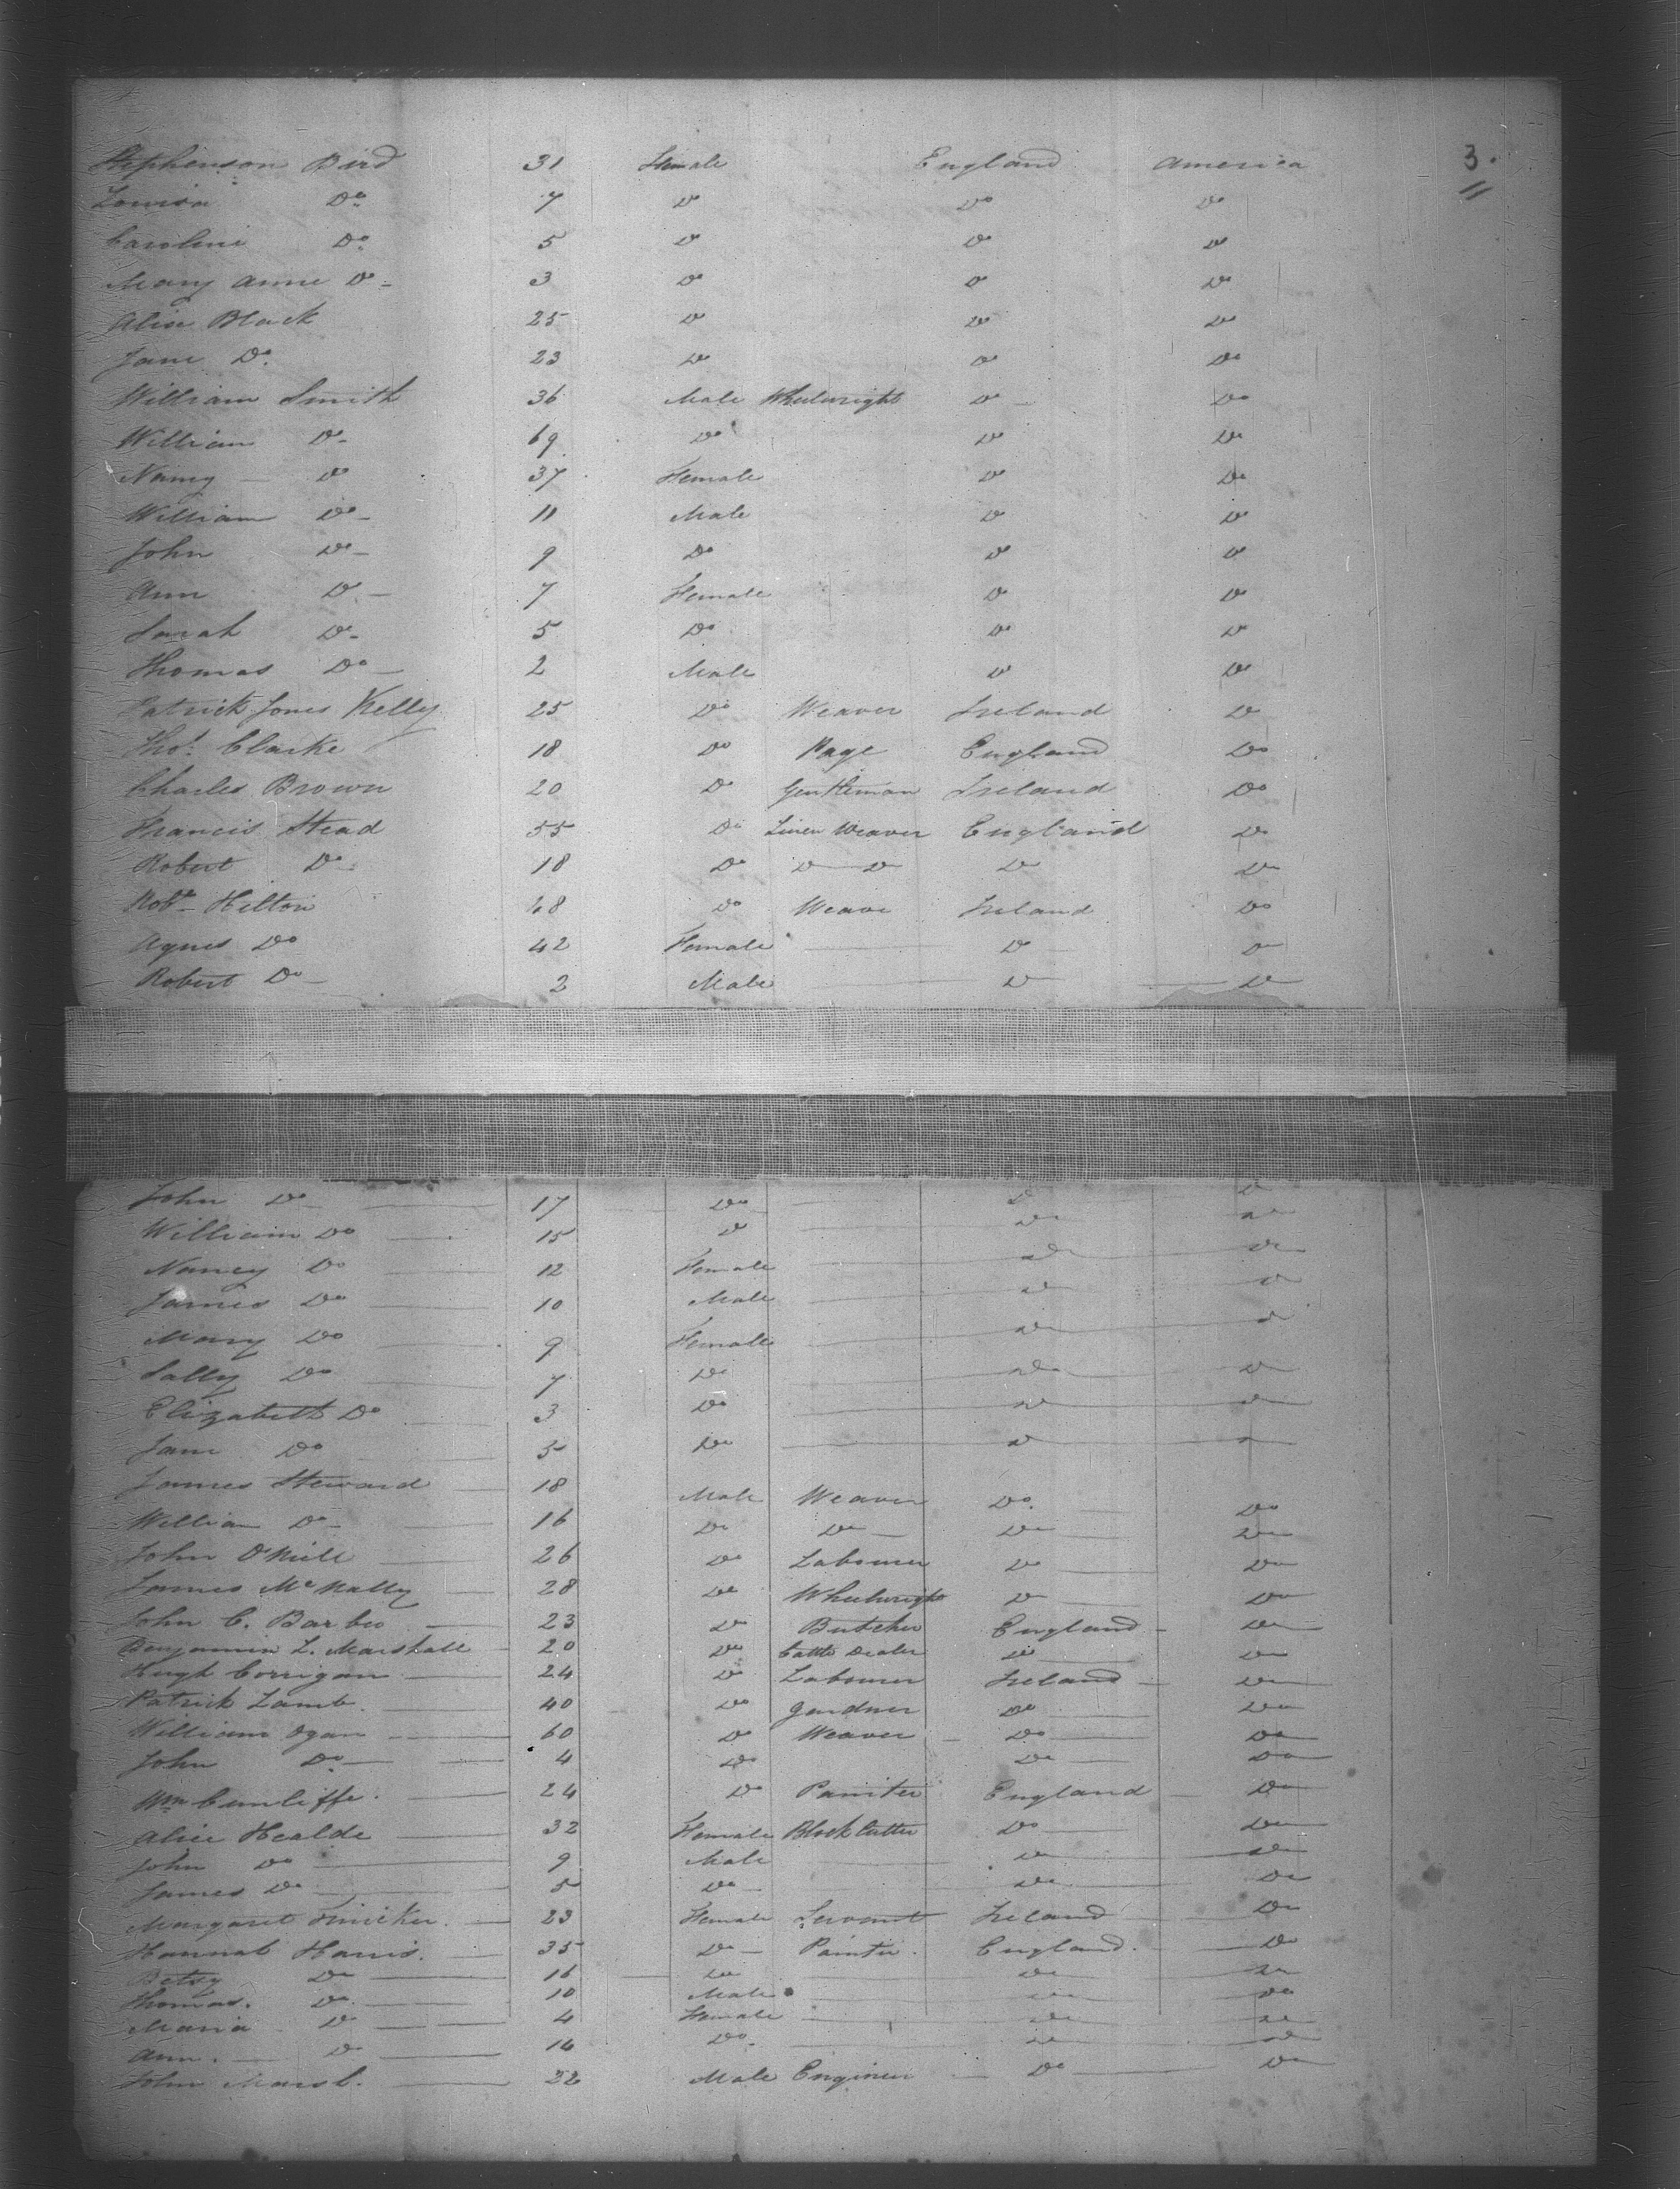 Stephenson Bird 31 Female England America 3.
Louisa Do 7 Do Do Do
Caroline Do 5 Do Do Do
Mary Anne Do 3 Do Do Do
Alice Black 25 Do Do Do
Jane Do 23 Do Do Do
William Smith 36 Male Wheelwright Do Do
William Do 69 Do Do Do
Nancy Do 37 Female Do Do
William Do 11 Male Do Do
John Do 9 Do Do Do
Ann Do 7 Female Do Do
Sarah Do 5 Do Do Do
Thomas Do 2 Male Do Do
Patrick Jones Kelly 25 Do Weaver Ireland Do
Thos. Clarke 18 Do Page England Do
Charles Brown 20 Do Gentleman Ireland Do
Francis Stead 55 Do Linen Weaver England Do
Robert Do 18 Do Do Do Do Do
Robt Hilton 48 Do Weave Ireland Do
Agnes Do 42 Female Do Do
Robert Do 2 Male Do Do
John Do 17 Do Do Do
William Do 15 Do Do Do
Nancy Do 12 Female Do Do
James Do 10 Male Do Do
Mary Do 9 Female Do Do
Sally Do 7 Do Do Do
Elizabeth Do 3 Do Do Do
Jane Do 5 Do Do Do
James Steward 18 Male Weaver Do Do
William Do 16 Do Do Do Do
John O'Niell 26 Do Labourer Do Do
James McNally 28 Do Wheelwright Do Do
John C. Barber 23 Do Butcher England Do
Benjamin L. Marshall 20 Do Cattle Dealer Do Do
Hugh Corrigan 24 Do Labourer Ireland Do
Patrick Lamb 40 Do Gardner Do Do
William Ogan 60 Do Weaver Do Do
John Do 4 Do Do Do
Wm Cunliffe 24 Do Painter England Do
Alice Healde 32 Female Block Cutter Do Do
John Do 9 Male Do Do
James Do 5 Do Do Do
Margaret 23 Female Servant Ireland Do
Hannah Harris 35 Do Painter England Do
Betsy Do 16 Do Do Do
Thomas Do 10 Male Do Do
Maria Do 4 Female Do Do
Ann Do 14 Do Do Do
John Marsh 22 Male Engineer Do Do